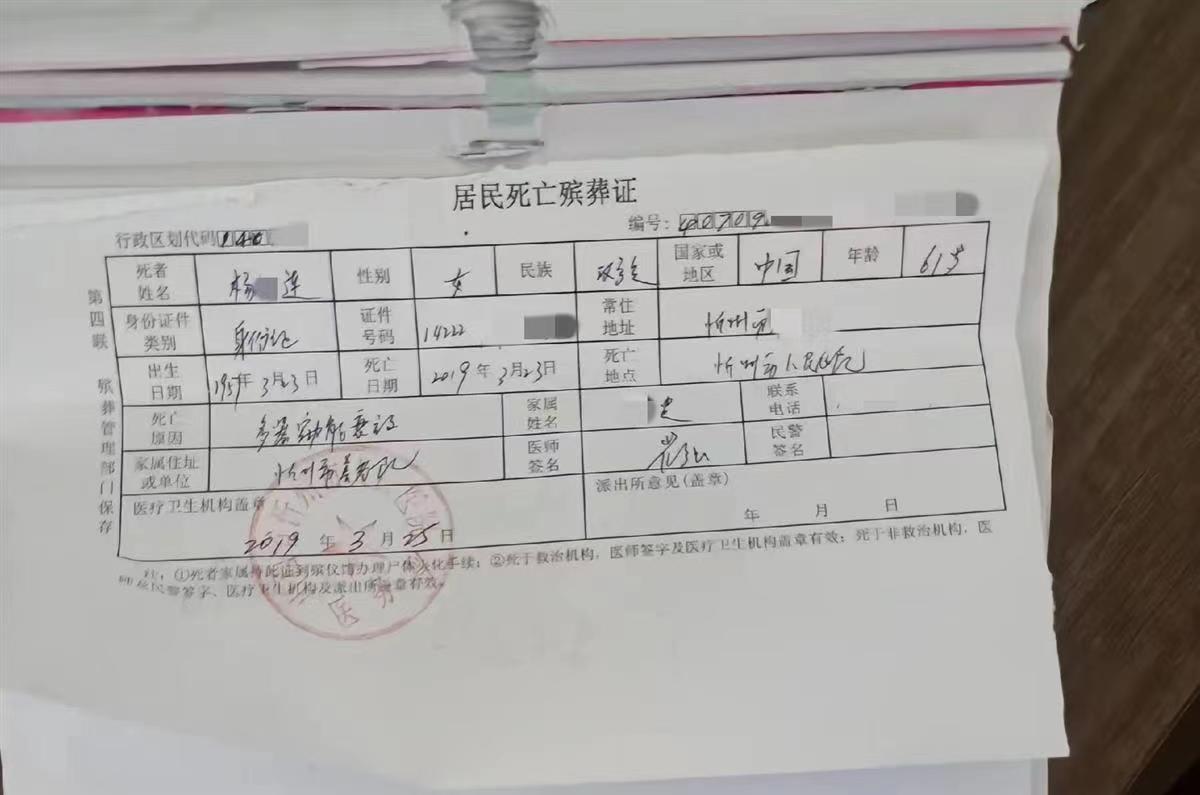 居民死亡殡葬证
行政区划代码140 编号:40709
死者姓名 杨 莲 性别 女 民族 国家或地区 中国 年龄 61岁
身份证件类别 身份证 证件号码 14222 常住地址 忻州市
出生日期 1957年3月23日 死亡日期 2019年3月23日 死亡地点 忻州市人民医院
死亡原因 多器官功能衰竭 家属姓名 联系电话
家属住址或单位 忻州市 医师签名 民警签名
医疗卫生机构盖章: 派出所意见(盖章)
2019年3月25日 年 月 日
注:①死者家属持此证到殡仪馆办理尸体火化手续;②死于救治机构,医师签字及医疗卫生机构盖章有效;死于非救治机构,医
师及民警签字、医疗卫生机构及派出所盖章有效。
第四联 殡葬管理部门保存